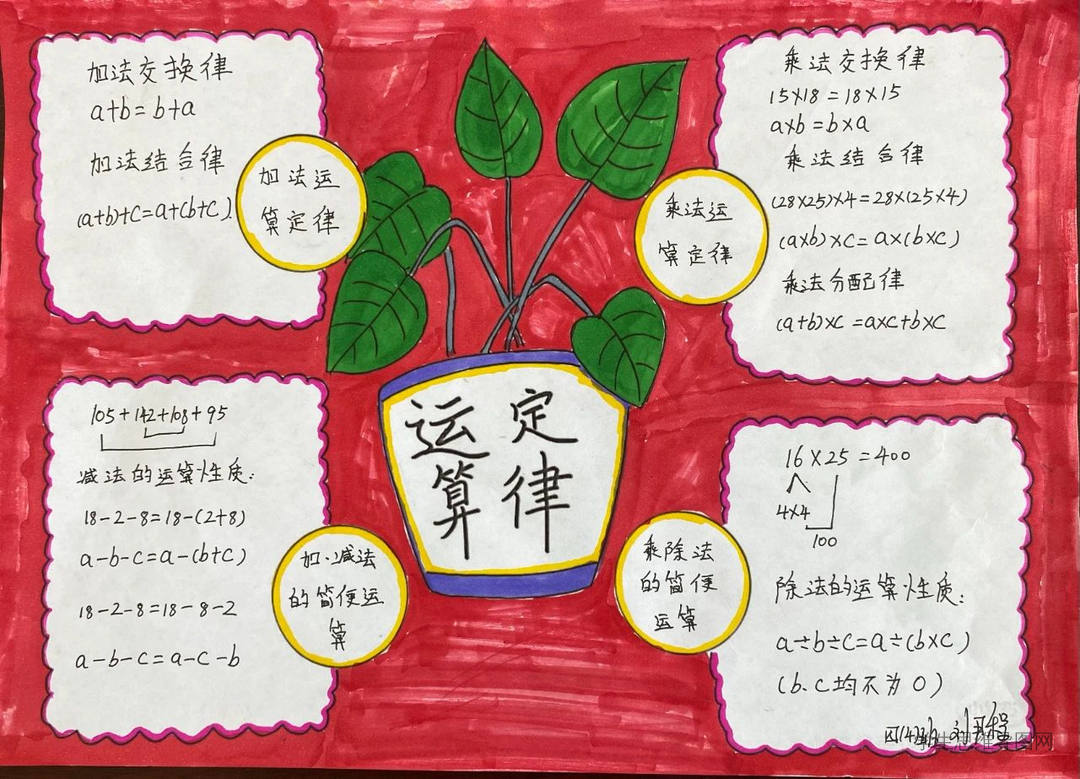 加法交换律
a+b=b+a
加法结合律
(a+b)+c=a+(b+c)
加法运
算定律
乘法交换律
15×18=18×15
a×b=b×a
乘法结合律
(28×25)×4=28×(25×4)
(a×b)×c=a×(b×c)
乘法分配律
(a+b)×c=a×c+b×c
乘法运
算定律
运算
定律
105+142+108+95
减法的运算性质:
18-2-8=18-(2+8)
a-b-c=a-(b+c)
18-2-8=18-8-2
a-b-c=a-c-b
加、减法
的简便运
算
16×25=400
4×4
100
除法的运算性质:
a÷b÷c=a÷(b×c)
(b、c均不为0)
乘除法
的简便
运算